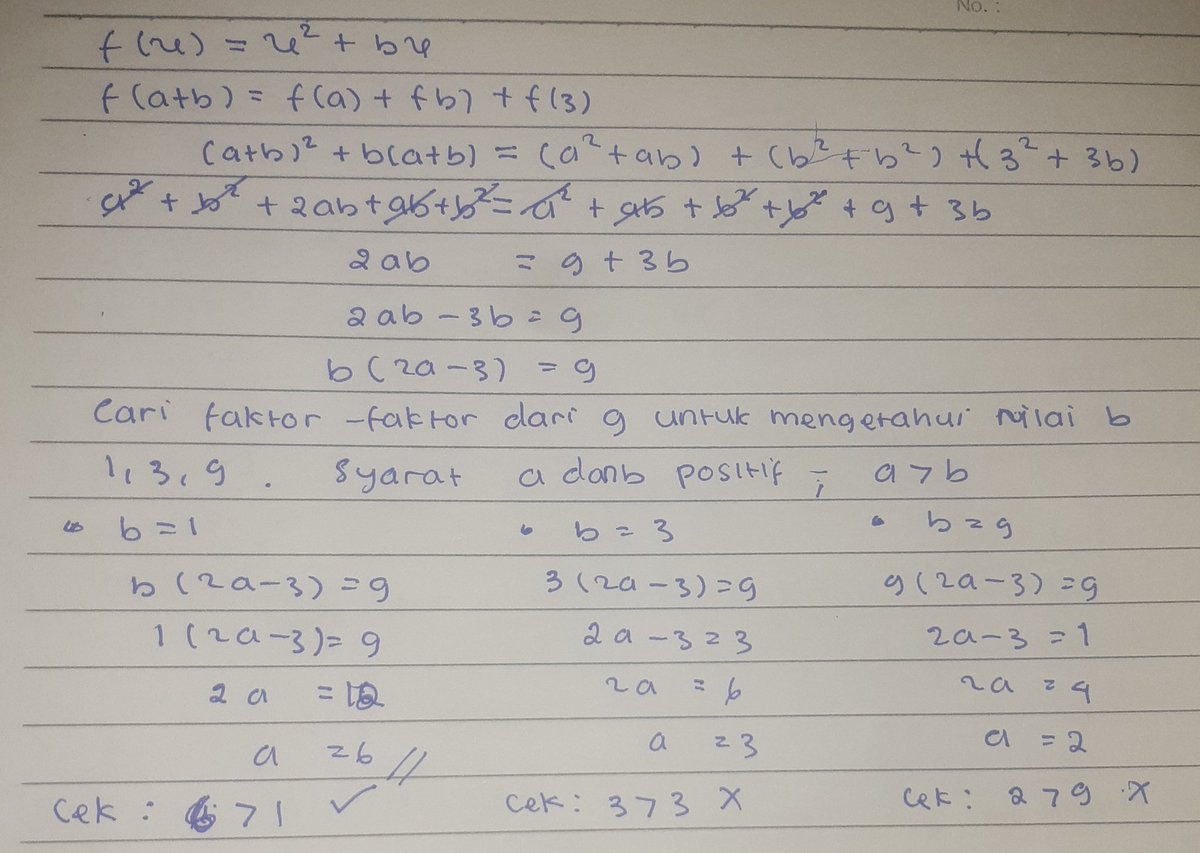 No. :
f(x) = x² + bx
f(a+b) = f(a) + fb) + f(3)
(a+b)² + b(a+b) = (a² + ab) + (b² + b²) + (3² + 3b)
a² + b² + 2ab + ab + b² = a² + ab + b² + b² + 9 + 3b
2ab = 9 + 3b
2ab - 3b = 9
b(2a-3) = 9
Cari faktor-faktor dari 9 untuk mengetahui nilai b
1, 3, 9. Syarat a dan b positif ; a > b
• b = 1 • b = 3 • b = 9
b(2a-3) = 9 3(2a-3) = 9 9(2a-3) = 9
1(2a-3) = 9 2a-3 = 3 2a-3 = 1
2a = 12 2a = 6 2a = 4
a = 6 // a = 3 a = 2
Cek : 6 > 1 ✓ Cek : 3 > 3 X Cek : 2 > 9 X